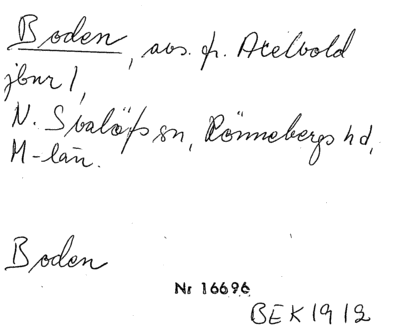 Boden, avs. fr. Axelvold
jbnr 1,
N. Svalöfs sn, Rönnebergs hd,
M-län.
Boden
Nr 16696
BEK 1912